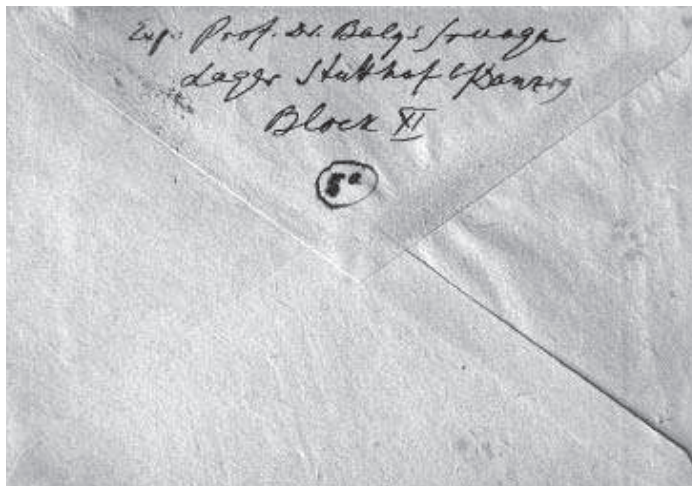 Exp.: Prof. Dr. Balys Sruoga
Lager Stutthof b/Danzig
Block XI
5a